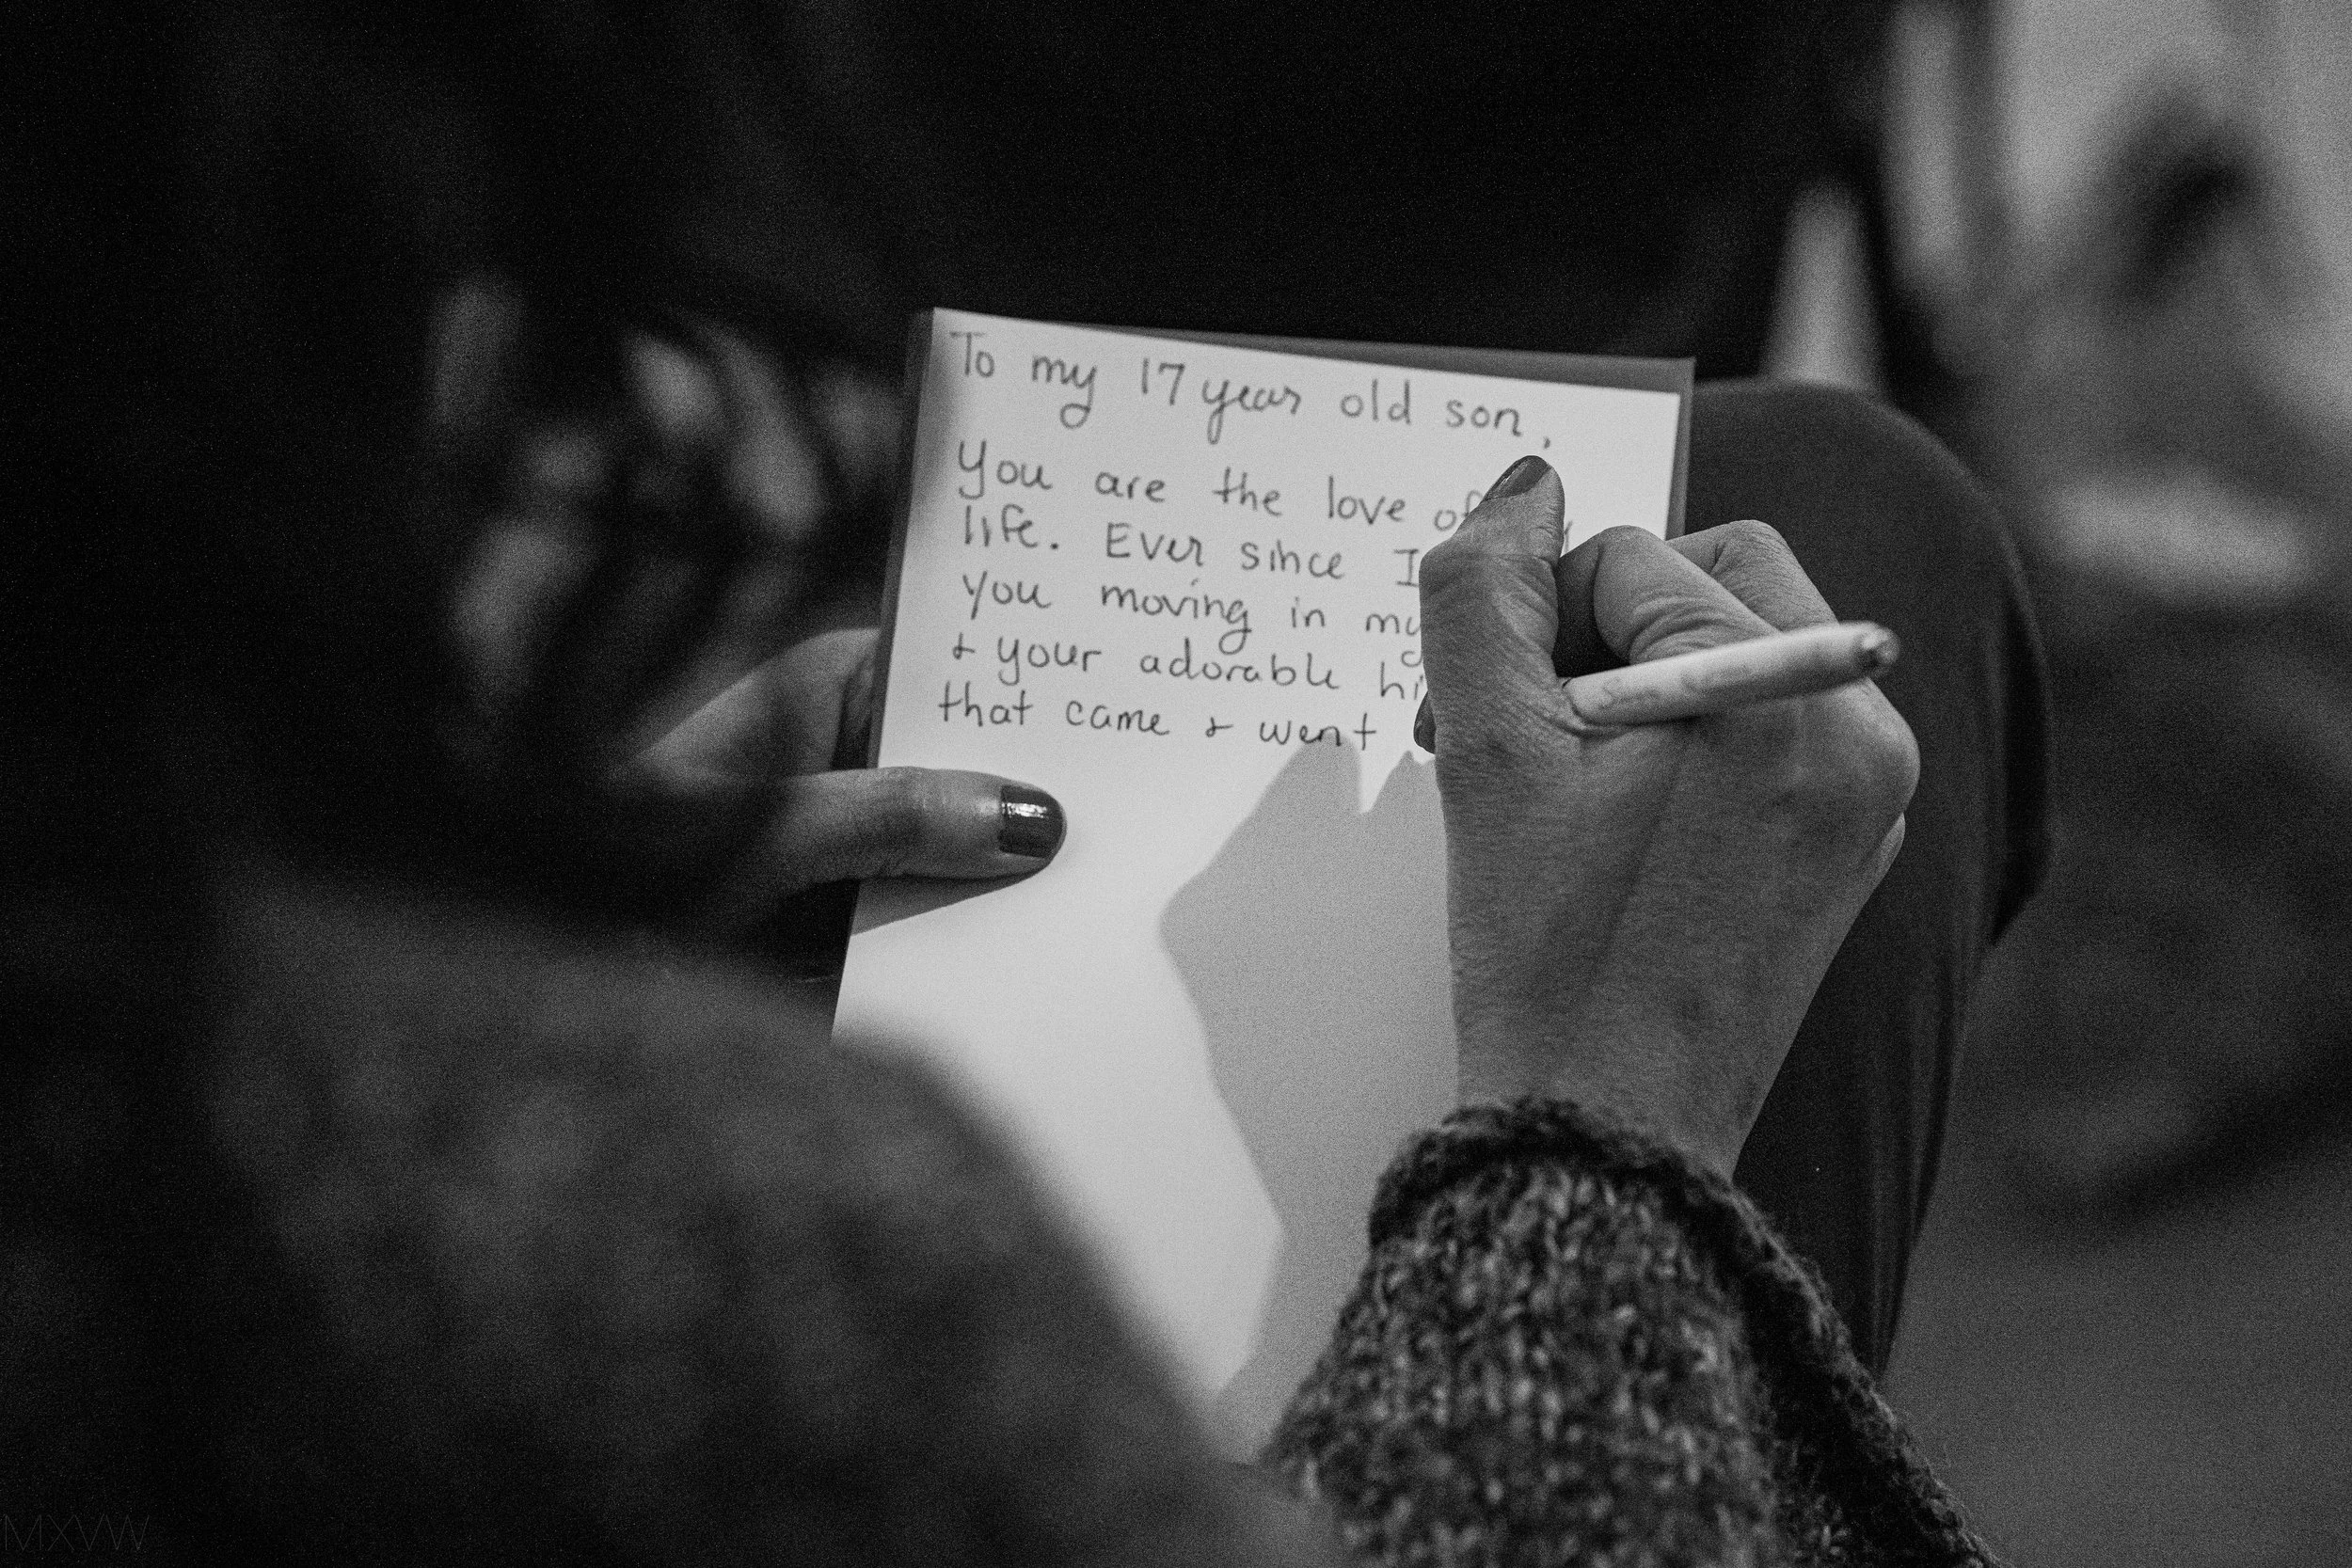 To my 17 year old son,
You are the love of
life. Ever since I
you moving in my
& your adorable
that came & went
MXVW